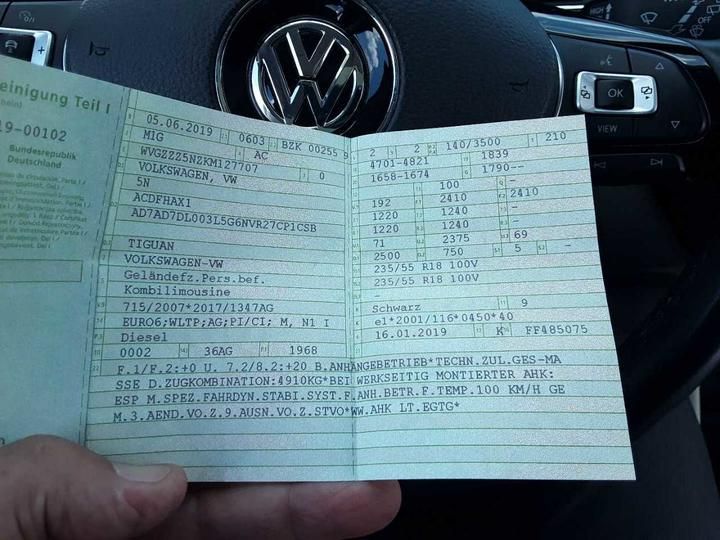 einigung Teil I
19-00102
Bundesrepublik
Deutschland
05.06.2019 0603 BZK 00255 9
MIG AC
WVGZZZ5NZKM127707
VOLKSWAGEN, VW 0
5N
ACDFHAX1
AD7AD7DL003L5G6NVR27CP1CSB
TIGUAN
VOLKSWAGEN-VW
Geländefz.Pers.bef.
Kombilimousine
715/2007*2017/1347AG
EURO6;WLTP;AG;PI/CI; M, N1 I
Diesel
0002 36AG 1968
2 2 140/3500 210
4701-4821 1839
1658-1674 1790--
100 -
192 2410 2410
1220 1240 -
1220 1240 -
71 2375 69
2500 750 5 -
235/55 R18 100V
235/55 R18 100V
-
Schwarz 9
e1*2001/116*0450*40
16.01.2019 K FF485075
F.1/F.2:+0 U. 7.2/8.2:+20 B.ANHÄNGEBETRIEB*TECHN.ZUL.GES-MA
SSE D.ZUGKOMBINATION:4910KG*BEI WERKSEITIG MONTIERTER AHK:
ESP M.SPEZ.FAHRDYN.STABI.SYST.F.ANH.BETR.F.TEMP.100 KM/H GE
M.3.AEND.VO.Z.9.AUSN.VO.Z.STVO*WW.AHK LT.EGTG*
OK
VIEW
OFF